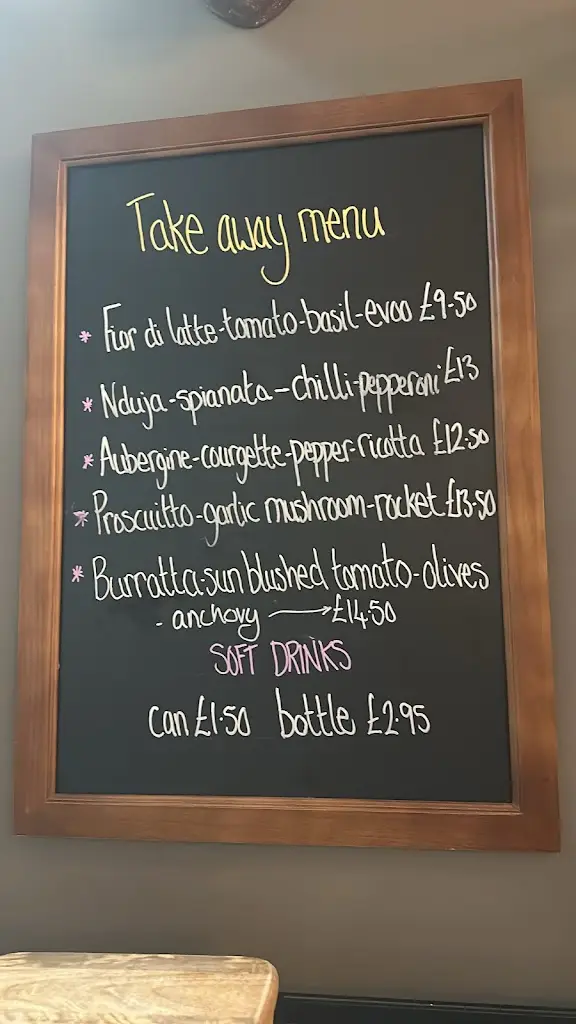 Take away menu
* Fior di latte-tomato-basil-evoo £9.50
* Nduja-spianata-chilli-pepperoni £13
* Aubergine-courgette-pepper-ricotta £12.50
* Proscuitto-garlic mushroom-rocket £13.50
* Burratta-sun blushed tomato-olives
- anchovy → £14.50
SOFT DRINKS
can £1.50 bottle £2.95